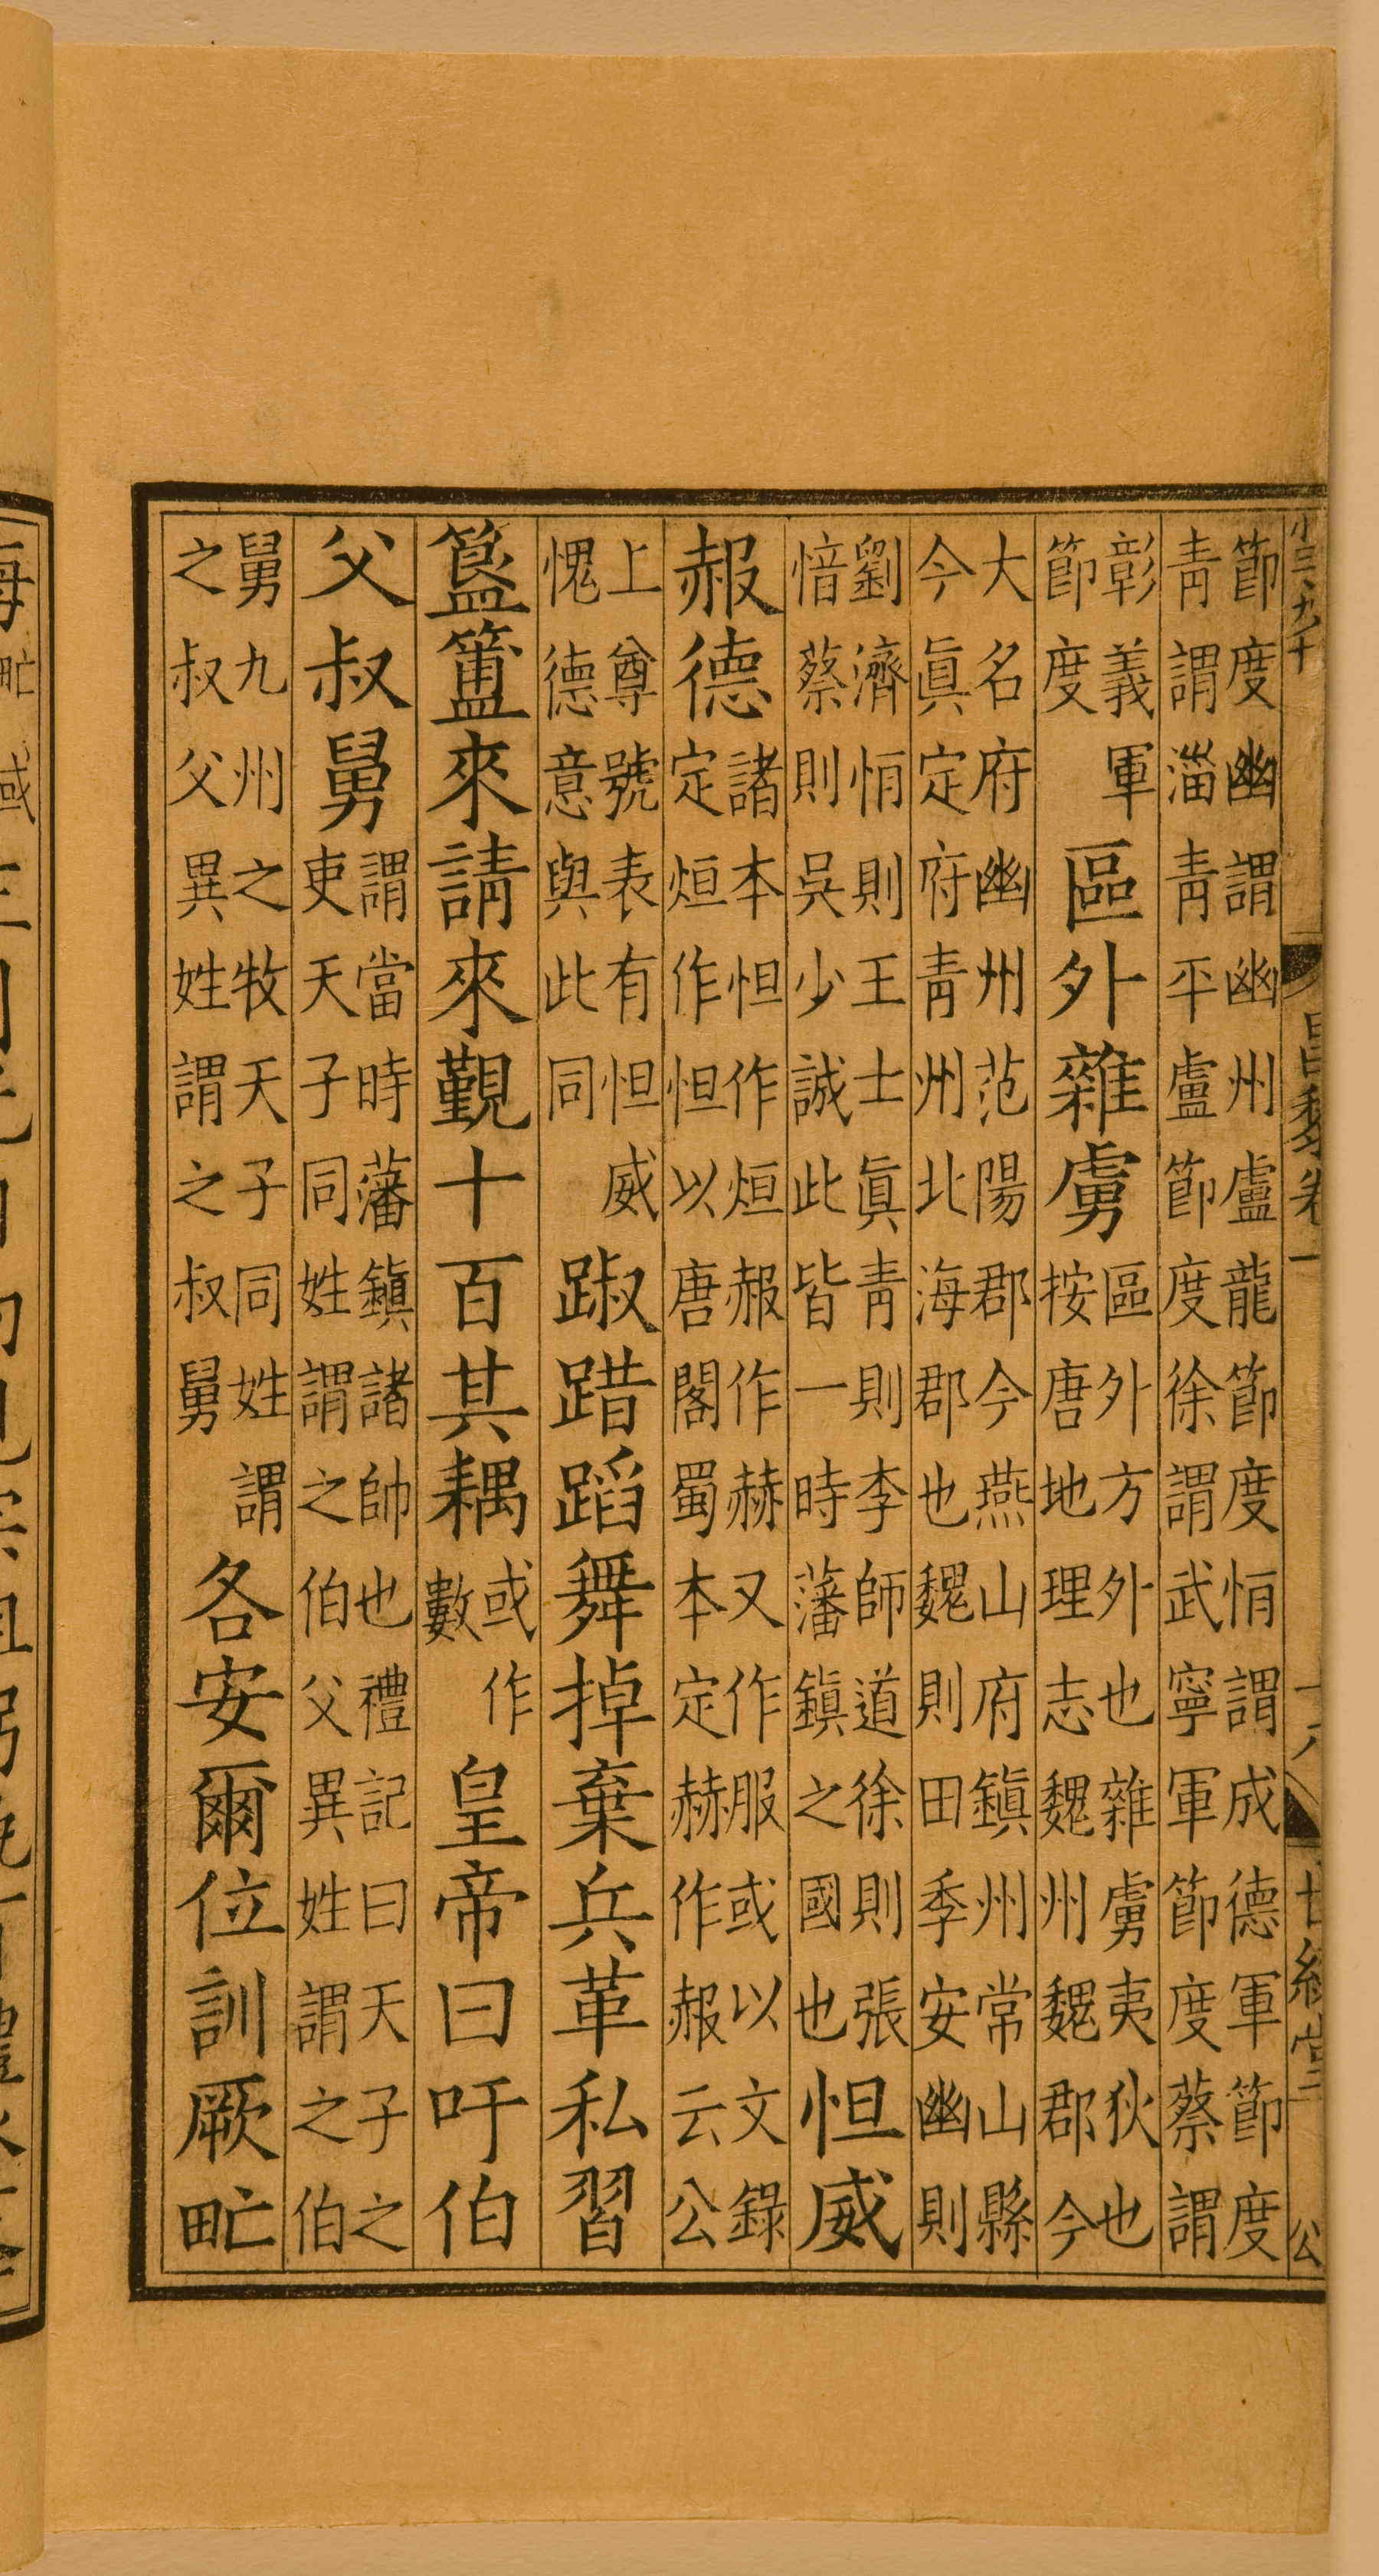 小三九十
昌黎卷一
世綵堂
公
節度幽謂幽州盧龍節度悁謂成德軍節度青謂淄青平盧節度徐謂武寧軍節度蔡謂
彰義軍節度區外雜虜區外方外也雜虜夷狄也按唐地理志魏州魏郡今
大名府幽州范陽郡今燕山府鎮州常山縣今眞定府青州北海郡也魏則田季安幽則
劉濟悁則王士眞青則李師道徐則張愔蔡則吳少誠此皆一時藩鎮之國也怛威
赧德諸本怛作烜赧作赫又作服或以文錄定烜作怛以唐閣蜀本定赫作赧云公
上尊號表有怛威愧德意與此同踧踖蹈舞掉棄兵革私習
簋簠來請來覲十百其耦或作數皇帝曰吁伯
父叔舅謂當時藩鎮諸帥也禮記曰天子之吏天子同姓謂之伯父異姓謂之伯
舅九州之牧天子同姓謂之叔父異姓謂之叔舅各安爾位訓厥甿